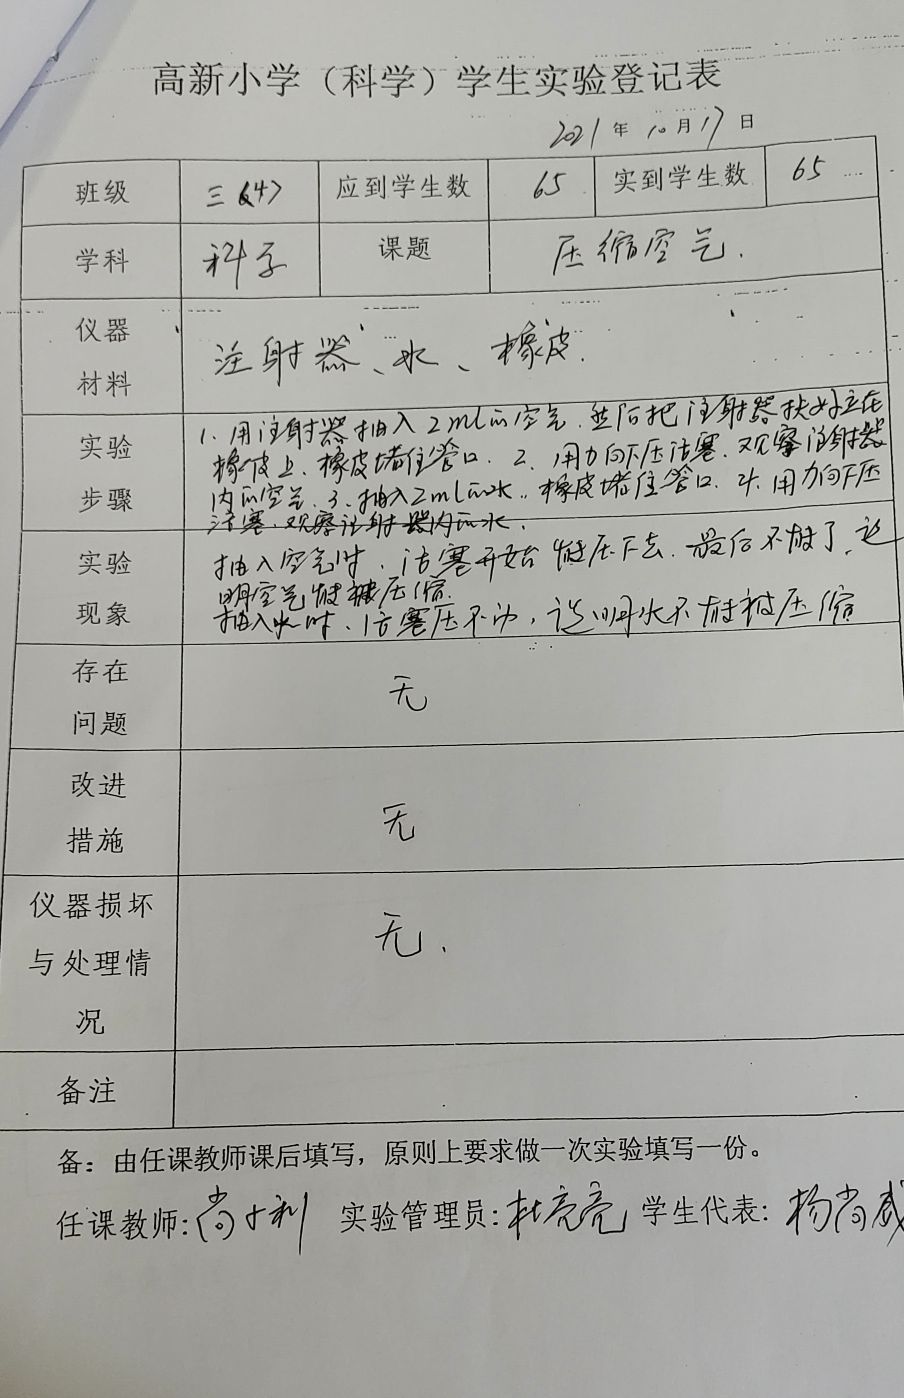 高新小学（科学）学生实验登记表
2021年10月17日
班级 三〈4〉 应到学生数 65 实到学生数 65
学科 科学 课题 压缩空气.
仪器材料 注射器、水、橡皮.
实验步骤
1. 用注射器抽入2ml的空气.然后把注射器快好立在
橡皮上.橡皮堵住管口. 2. 用力向下压活塞.观察注射器
内的空气. 3. 抽入2ml的水..橡皮堵住管口. 4. 用力向下压
活塞.观察注射器内的水.
实验现象
抽入空气时.活塞开始能压下去.最后不能了.说
明空气能被压缩.
抽入水时、活塞压不动,说明水不能被压缩
存在问题 无
改进措施 无
仪器损坏与处理情况 无.
备注
备：由任课教师课后填写，原则上要求做一次实验填写一份。
任课教师: 实验管理员:杜亮亮 学生代表: 杨尚威